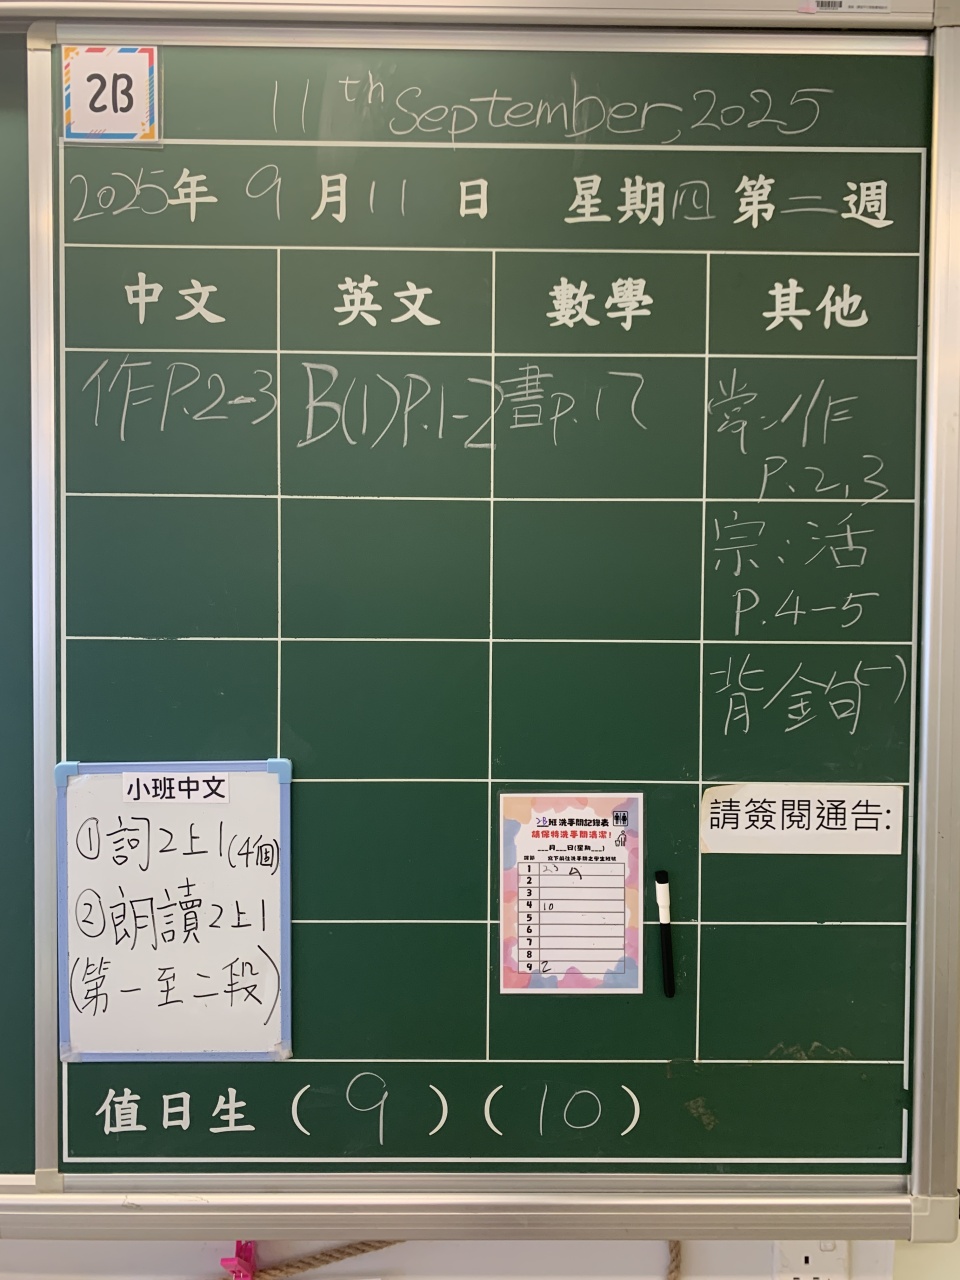 2B
11th September, 2025
2025年 9 月 11 日 星期四 第二週
中文 英文 數學 其他
作P.2-3 B(1)P.1-2 書p.17 常:作
P.2,3
宗:活
P.4-5
背金句(一)
小班中文
①詞2上1(4個)
②朗讀2上1
(第一至二段)
2B班 洗手間記錄表
請保持洗手間清潔!
___月___日(星期___)
課節 寫下前往洗手間之學生班號
1 23
2
3
4 10
5
6
7
8
9 2
請簽閱通告:
值日生 ( 9 ) ( 10 )